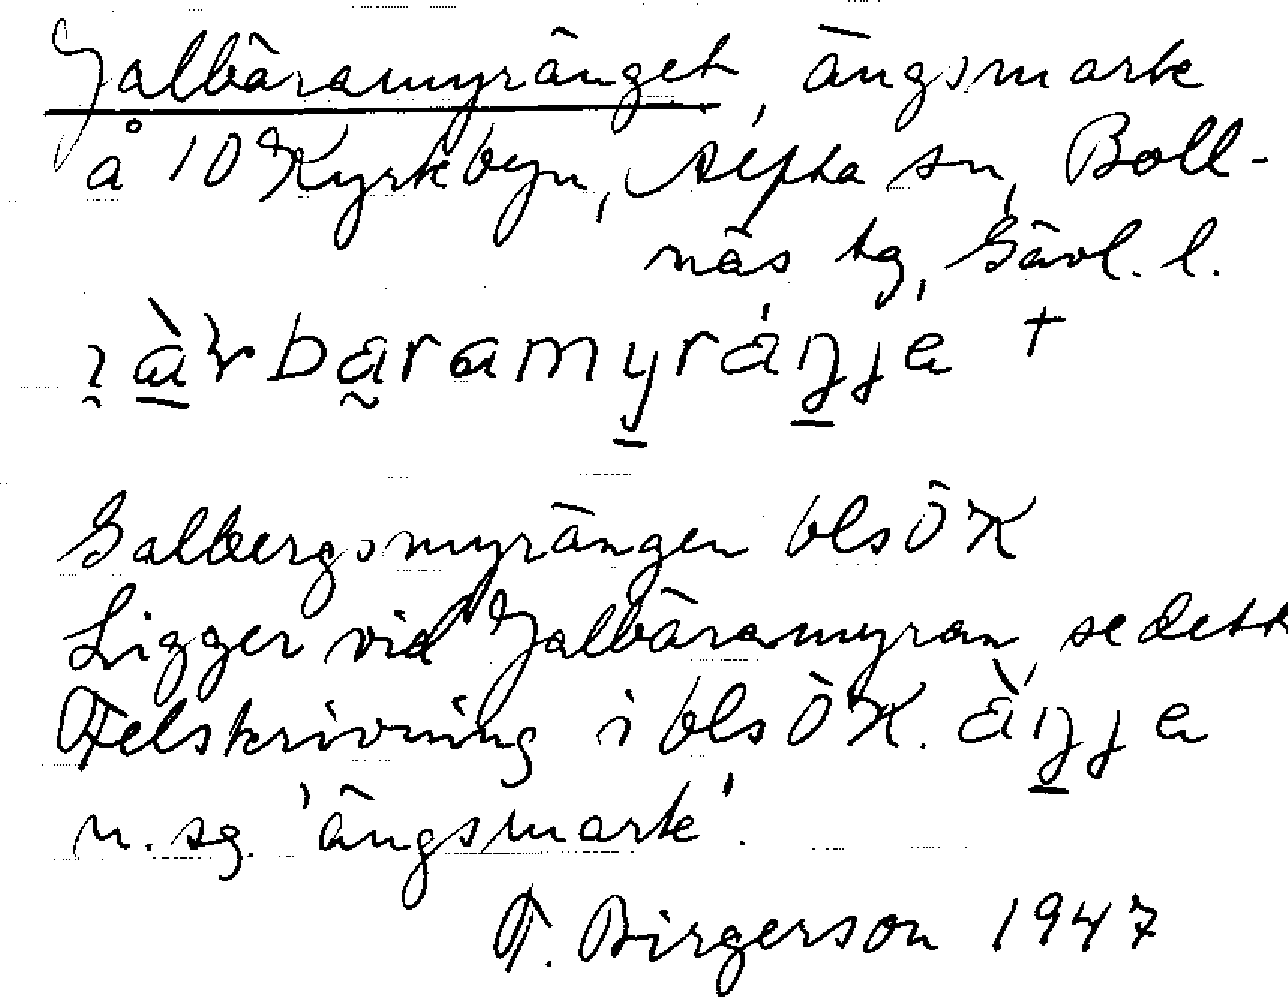 Jalbäramyränget, ängsmark
å 10 Kyrkbyn, Alfta sn, Boll-
näs tg, Gävl. l.
baramyráŋja +
Galbergsmyrängen blsÖK
Ligger vid Jalbäramyran, se detta
Felskrivning i blsÖK. àŋja
n. sg. 'ängsmark'.
F. Birgerson 1947